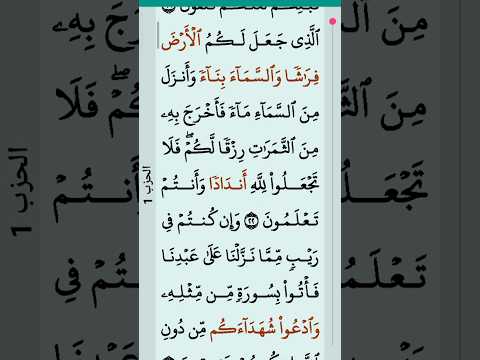 ٱلَّذِي جَعَلَ لَكُمُ ٱلۡأَرۡضَ
فِرَٰشٗا وَٱلسَّمَآءَ بِنَآءٗ وَأَنزَلَ
مِنَ ٱلسَّمَآءِ مَآءٗ فَأَخۡرَجَ بِهِۦ
مِنَ ٱلثَّمَرَٰتِ رِزۡقٗا لَّكُمۡۖ فَلَا
تَجۡعَلُواْ لِلَّهِ أَندَادٗا وَأَنتُمۡ
تَعۡلَمُونَ ٢٢ وَإِن كُنتُمۡ فِي
رَيۡبٖ مِّمَّا نَزَّلۡنَا عَلَىٰ عَبۡدِنَا
فَأۡتُواْ بِسُورَةٖ مِّن مِّثۡلِهِۦ
وَٱدۡعُواْ شُهَدَآءَكُم مِّن دُونِ
الحزب 1